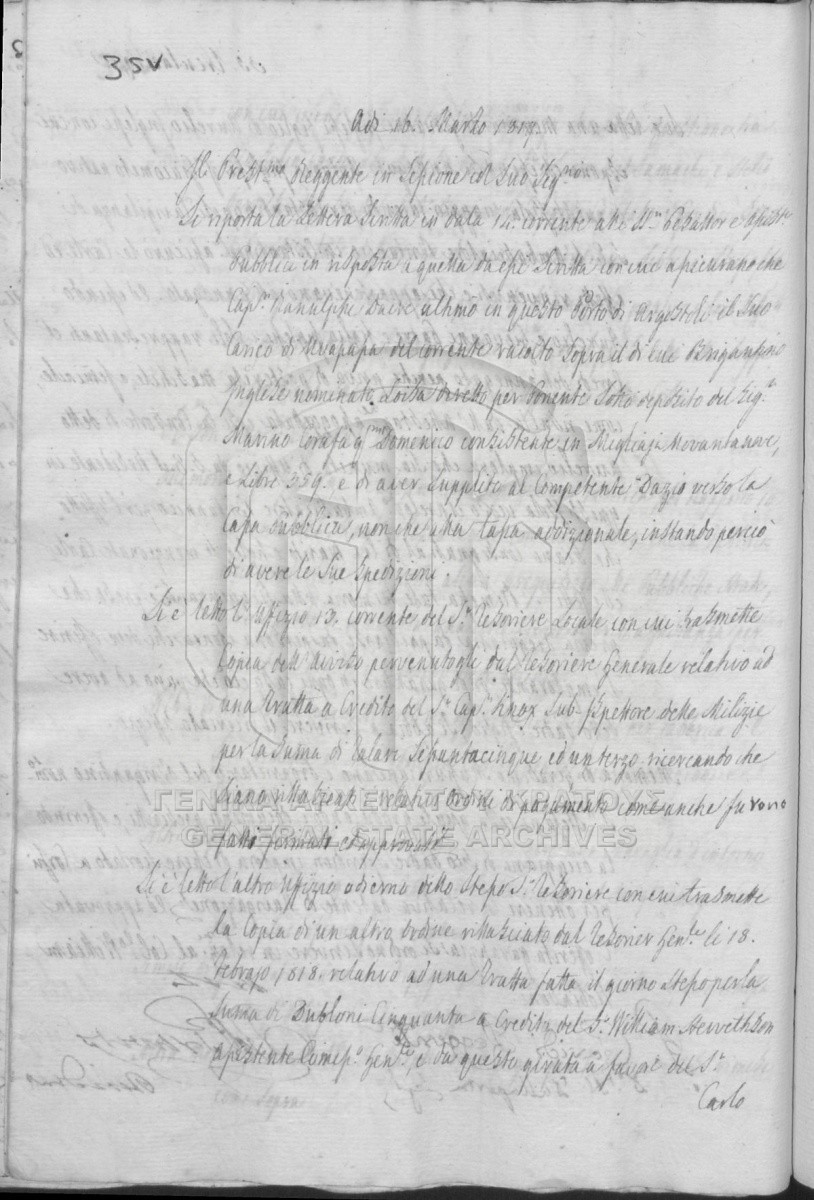 35v
Adi 16. Marzo 1818.
Il Prest.mo Reggente in Sessione col Suo Seg.rio
Si riporta la Lettera Scritta in data 14. corrente alli SS.ri Esattor e
Pubblica in risposta a quella da essi Scritta con cui assicurano che
Cap.n Panalppe Dacre ultimò in questo Porto di Argostoli il Suo
Carico di Uvapassa del corrente racolto Sopra il di lui Brigantino
Inglese nominato Loisa diretto per Ponente Sotto deposito del Sig.r
Marino Corafà q.m Domenico consistente in Migliaja Novantanove,
e Libre 359. e di aver Supplito al Competente Dazio verso la
Cassa Pubblica, non che alla tassa addizionale, instando perciò
di avere le Sue Spedizioni.
Si è letto l'Uffizio 13. corrente del S.r Tesoriere Locale con cui trasmette
Copia dell'Avviso pervenutogli dal Tesoriere Generale relativo ad
una Tratta a Credito del S.r Cap.n Knox Sub-Ispettore delle Milizie
per la Suma di Talari Sessantacinque ed un terzo ricercando che
siano rilasciati relativi Ordini di pagamento come anche furono
fatto formati ed approvati
Si è letto l'altro Uffizio odierno dello Stesso S.r Tesoriere con cui trasmette
la Copia di un altro Ordine rillasciato dal Tesorier Gen.le li 18.
Febrajo 1818. relativo ad una Tratta fatta il giorno Stesso per la
Suma di Dubloni Cinquanta a Credito del S.r William
Assistente Comiss.o Gen.le e da questo girata a favore del S.r
Carlo
ΓΕΝΙΚΑ ΑΡΧΕΙΑ ΤΟΥ ΚΡΑΤΟΥΣ
GENERAL STATE ARCHIVES